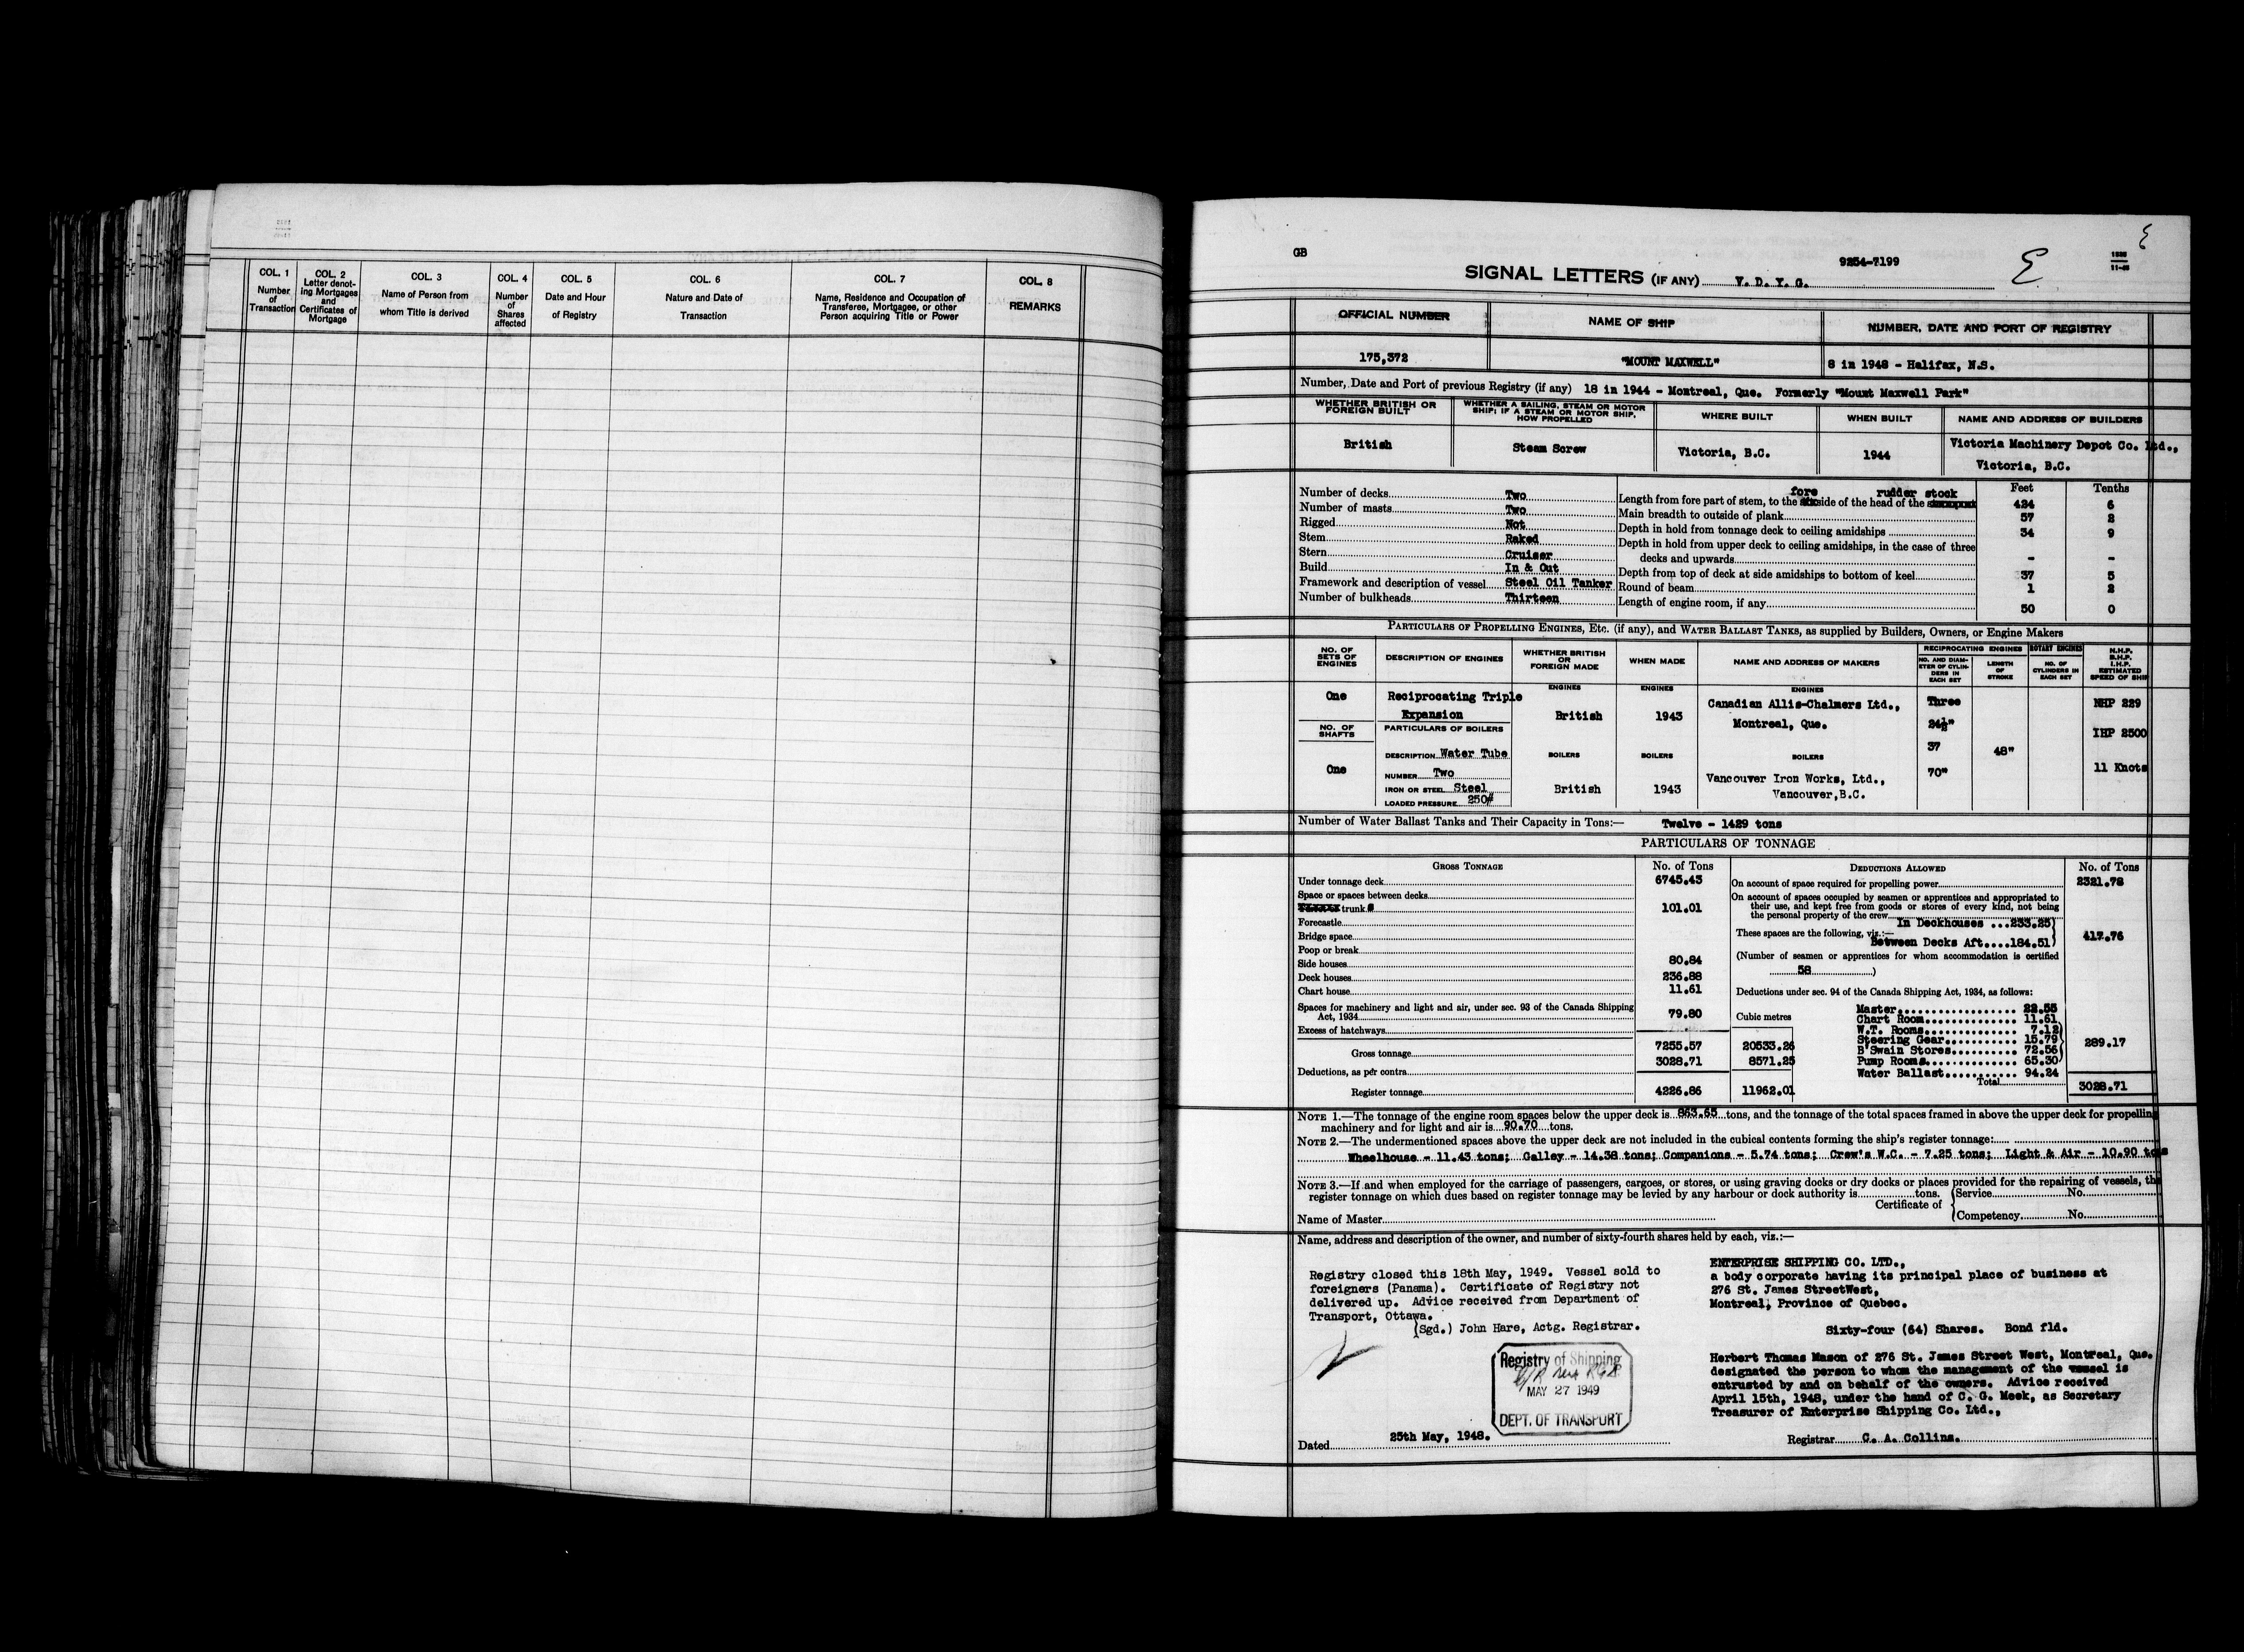 COL. 1
Number
of
Transaction
COL. 2
Letter denot-
ing Mortgages
and
Certificates of
Mortgage
COL. 3
Name of Person from
whom Title is derived
COL. 4
Number
of
Shares
affected
COL. 5
Date and Hour
of Registry
COL. 6
Nature and Date of
Transaction
COL. 7
Name, Residence and Occupation of
Transferee, Mortgagee, or other
Person acquiring Title or Power
COL. 8
REMARKS
GB
9254-7199
E
SIGNAL LETTERS (IF ANY) V. D. Y. G.
OFFICIAL NUMBER
NAME OF SHIP
NUMBER, DATE AND PORT OF REGISTRY
175,372
"MOUNT MAXWELL"
8 in 1948 - Halifax, N.S.
Number, Date and Port of previous Registry (if any) 18 in 1944 - Montreal, Que. Formerly "Mount Maxwell Park"
WHETHER BRITISH OR
FOREIGN BUILT
WHETHER A SAILING, STEAM OR MOTOR
SHIP; IF A STEAM OR MOTOR SHIP,
HOW PROPELLED
WHERE BUILT
WHEN BUILT
NAME AND ADDRESS OF BUILDERS
British
Steam Screw
Victoria, B.C.
1944
Victoria Machinery Depot Co. Ltd.,
Victoria, B.C.
Number of decks Two
Number of masts Two
Rigged Not
Stem Raked
Stern Cruiser
Build In & Out
Framework and description of vessel Steel Oil Tanker
Number of bulkheads Thirteen
Feet Tenths
fore rudder stock
Length from fore part of stem, to the side of the head of the 424 6
Main breadth to outside of plank 57 2
Depth in hold from tonnage deck to ceiling amidships 34 9
Depth in hold from upper deck to ceiling amidships, in the case of three
decks and upwards - -
Depth from top of deck at side amidships to bottom of keel 37 5
Round of beam 1 2
Length of engine room, if any 50 0
PARTICULARS OF PROPELLING ENGINES, ETC. (if any), and WATER BALLAST TANKS, as supplied by Builders, Owners, or Engine Makers
NO. OF
SETS OF
ENGINES
DESCRIPTION OF ENGINES
WHETHER BRITISH
OR
FOREIGN MADE
WHEN MADE
NAME AND ADDRESS OF MAKERS
RECIPROCATING ENGINES
NO. AND DIAM-
ETER OF CYLIN-
DERS IN
EACH SET
LENGTH
OF
STROKE
ROTARY ENGINES
NO. OF
CYLINDERS IN
EACH SET
N.H.P.
B.H.P.
I.H.P.
ESTIMATED
SPEED OF SHIP
One
Reciprocating Triple
Expansion
ENGINES
British
ENGINES
1943
ENGINES
Canadian Allis-Chalmers Ltd.,
Montreal, Que.
Three
24½"
37
70"
48"
NHP 229
IHP 2500
11 Knots
NO. OF
SHAFTS
One
PARTICULARS OF BOILERS
DESCRIPTION Water Tube
NUMBER Two
IRON OR STEEL Steel
LOADED PRESSURE 250#
BOILERS
British
BOILERS
1943
BOILERS
Vancouver Iron Works, Ltd.,
Vancouver, B.C.
Number of Water Ballast Tanks and Their Capacity in Tons:— Twelve - 1429 tons
PARTICULARS OF TONNAGE
GROSS TONNAGE No. of Tons
Under tonnage deck 6745.43
Space or spaces between decks
trunks 101.01
Forecastle
Bridge space
Poop or break
Side houses 80.84
Deck houses 236.88
Chart house 11.61
Spaces for machinery and light and air, under sec. 93 of the Canada Shipping
Act, 1934 79.80
Excess of hatchways
Cubic metres
Gross tonnage 7255.57 20533.26
Deductions, as per contra 3028.71 8571.25
Register tonnage 4226.86 11962.01
DEDUCTIONS ALLOWED No. of Tons
On account of space required for propelling power 2321.78
On account of spaces occupied by seamen or apprentices and appropriated to
their use, and kept free from goods or stores of every kind, not being
the personal property of the crew
In Deckhouses ...233.25
These spaces are the following, viz.:—
Between Decks Aft....184.51
417.76
(Number of seamen or apprentices for whom accommodation is certified
58 )
Deductions under sec. 94 of the Canada Shipping Act, 1934, as follows:
Master 22.55
Chart Room 11.61
W.T. Rooms 7.12
Steering Gear 15.79
B'Swain Stores 72.56
Pump Rooms 65.30
Water Ballast 94.24
289.17
Total 3028.71
NOTE 1.—The tonnage of the engine room spaces below the upper deck is 863.65 tons, and the tonnage of the total spaces framed in above the upper deck for propelling
machinery and for light and air is 90.70 tons.
NOTE 2.—The undermentioned spaces above the upper deck are not included in the cubical contents forming the ship's register tonnage:
Wheelhouse - 11.43 tons; Galley - 14.38 tons; Companions - 5.74 tons; Crew's W.C. - 7.25 tons; Light & Air - 10.90 tons
NOTE 3.—If and when employed for the carriage of passengers, cargoes, or stores, or using graving docks or dry docks or places provided for the repairing of vessels, the
register tonnage on which dues based on register tonnage may be levied by any harbour or dock authority is tons.
Certificate of
Service No.
Competency No.
Name of Master
Name, address and description of the owner, and number of sixty-fourth shares held by each, viz.:—
Registry closed this 18th May, 1949. Vessel sold to
foreigners (Panama). Certificate of Registry not
delivered up. Advice received from Department of
Transport, Ottawa.
(Sgd.) John Hare, Actg. Registrar.
Registry of Shipping
MAY 27 1949
DEPT. OF TRANSPORT
ENTERPRISE SHIPPING CO. LTD.,
a body corporate having its principal place of business at
276 St. James StreetWest,
Montreal, Province of Quebec.
Sixty-four (64) Shares. Bond fld.
Herbert Thomas Mason of 276 St. James Street West, Montreal, Que.
designated the person to whom the management of the vessel is
entrusted by and on behalf of the owners. Advice received
April 15th, 1948, under the hand of C. G. Meek, as Secretary
Treasurer of Enterprise Shipping Co. Ltd.,
Dated 25th May, 1948.
Registrar C. A. Collins.